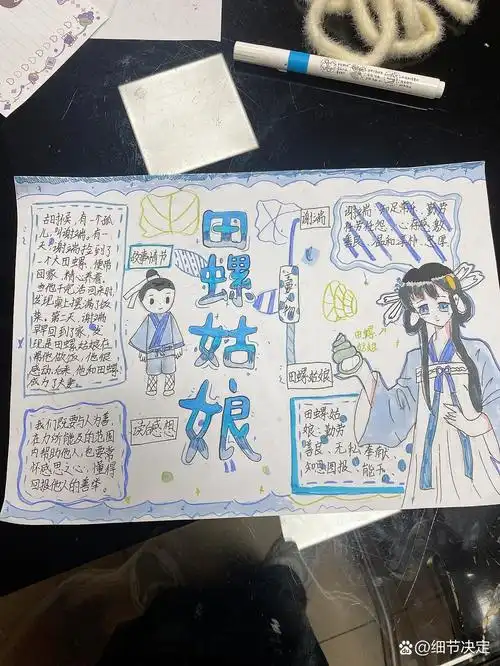 田螺姑娘
古时候,有一个孤
儿,叫谢端。有一
天,谢端捡到了
一个大田螺,便带
回家,精心养着。
当他干完活回来时,
发现桌上摆满了饭
菜。第二天,谢端
早早回到家,发
现是田螺姑娘在
帮他做饭,他很
感动,后来,他和田螺
成为了夫妻。
故事情节
我们既要与人为善,
在力所能及的范围
内帮助他人,也要常
怀感恩之心,懂得
回报他人的善举。
读后感想
谢端
谢端
勤劳
任劳
善良
温和
忠厚
田螺
姑娘
田螺姑娘
田螺姑
娘,勤劳
善良、无私奉献
知恩图报、能干
@细节决定